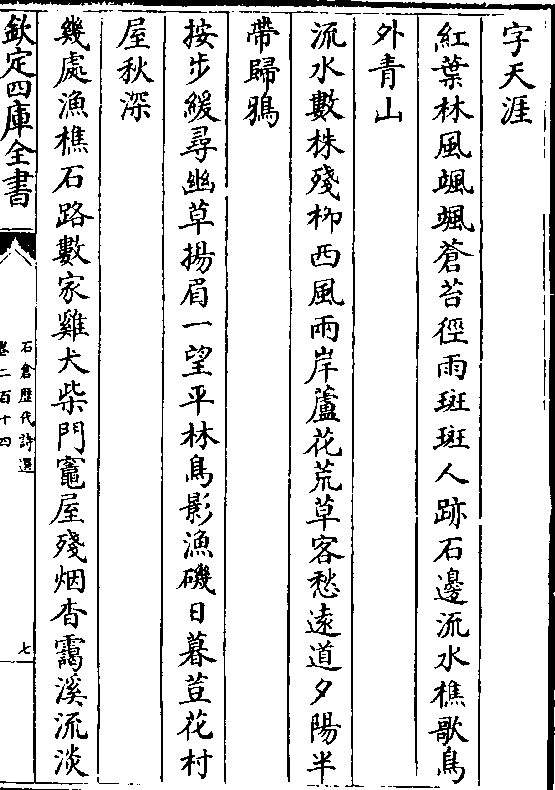 字天涯
紅葉林風颯颯蒼苔徑雨斑斑人跡石邊流水樵歌鳥
外青山
流水數株殘柳西風兩岸蘆花荒草客愁遠道夕陽半
帶歸鴉
按步緩尋幽草揚眉一望平林鳥影漁磯日暮荳花村
屋秋深
幾處漁樵石路數家雞犬柴門竈屋殘烟杳靄溪流淡
欽定四庫全書
石倉歷代詩選
卷二百十四
七